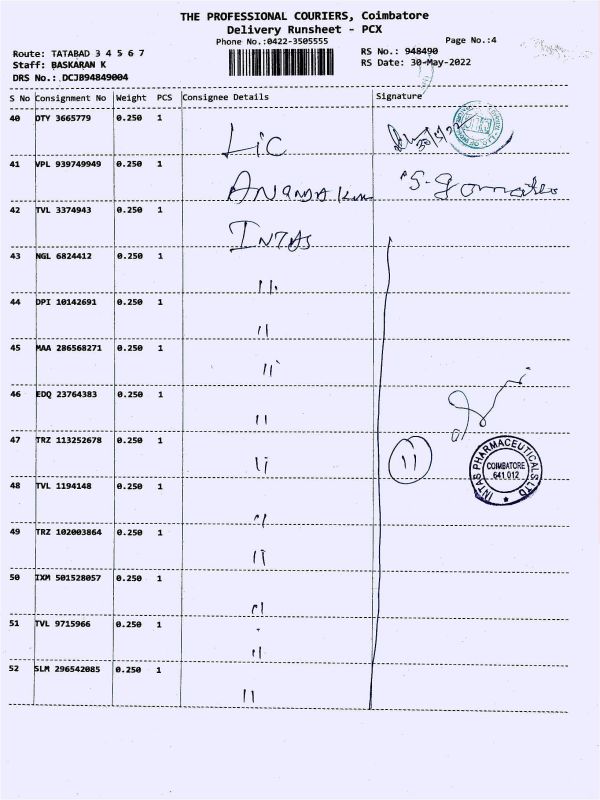 THE PROFESSIONAL COURIERS, Coimbatore
Delivery Runsheet - PCX
Phone No.:0422-3505555
Page No.:4
Route: TATABAD 3 4 5 6 7
RS No.: 948490
Staff: BASKARAN K
RS Date: 30-May-2022
DRS No.: DCJB94849004
S No Consignment No Weight PCS Consignee Details Signature
40 DTY 3665779 0.250 1
LIC
41 VPL 939749949 0.250 1
42 TVL 3374943 0.250 1
INTAS
43 NGL 6824412 0.250 1
11
44 DPI 10142691 0.250 1
11
45 MAA 286568271 0.250 1
11
46 EDQ 23764383 0.250 1
11
47 TRZ 113252678 0.250 1
11
11
INTAS PHARMACEUTICALS LTD
COIMBATORE
641 012
48 TVL 1194148 0.250 1
11
49 TRZ 102003864 0.250 1
11
50 IXM 501528057 0.250 1
11
51 TVL 9715966 0.250 1
11
52 SLM 296542085 0.250 1
11